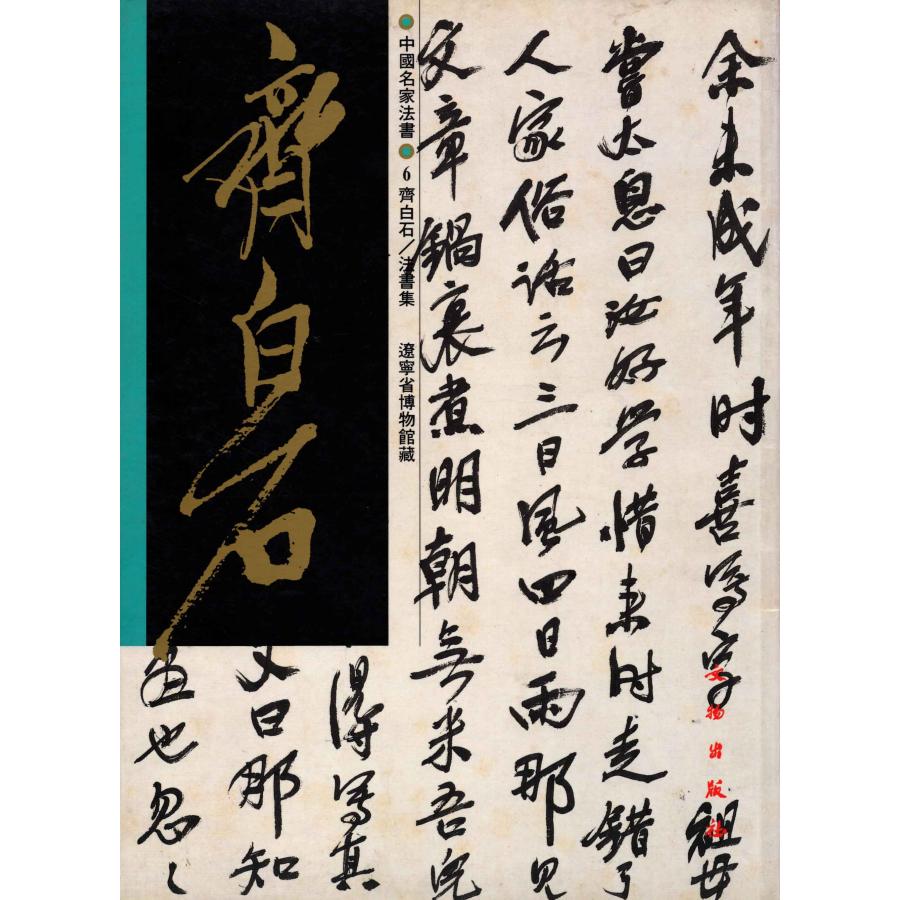 余未成年时喜写字祖母
尝太息曰汝好学惜来时走错了
人家俗话云三日风四日雨那见
文章锅裏煮明朝无米吾儿
得写真
又曰那知
画也忽〻
中國名家法書
6 齊白石/法書集
遼寧省博物館藏
齊白石
文物出版社